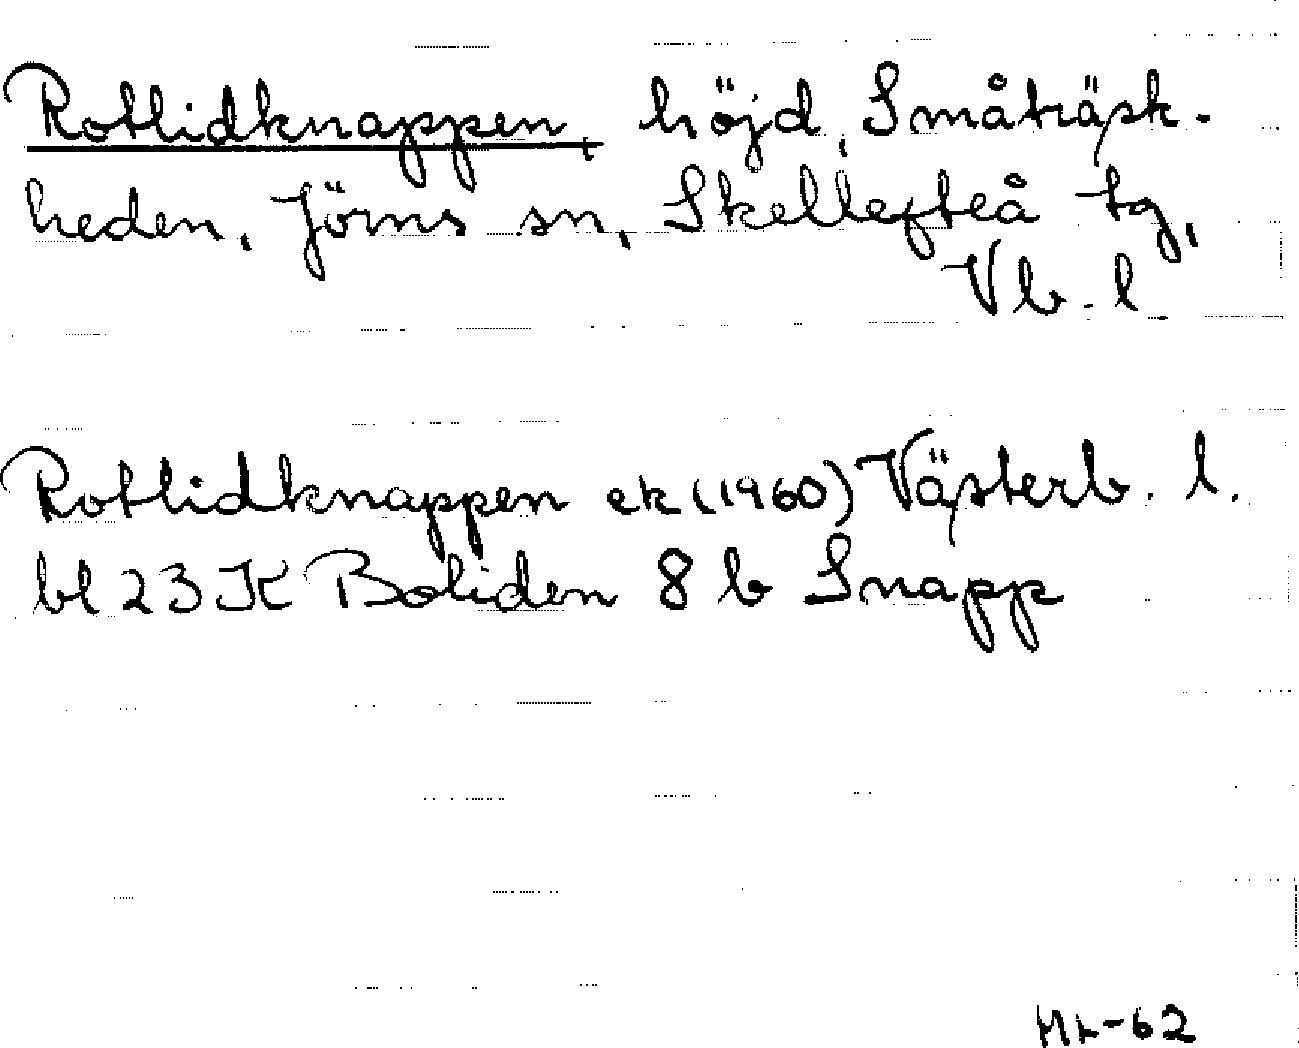 Rotlidknappen, höjd, Småträsk-
heden, Jörns sn, Skellefteå tg,
Vb. l
Rotlidknappen ek (1960) Västerb. l.
bl 23 K Boliden 8 b Snapp
-62